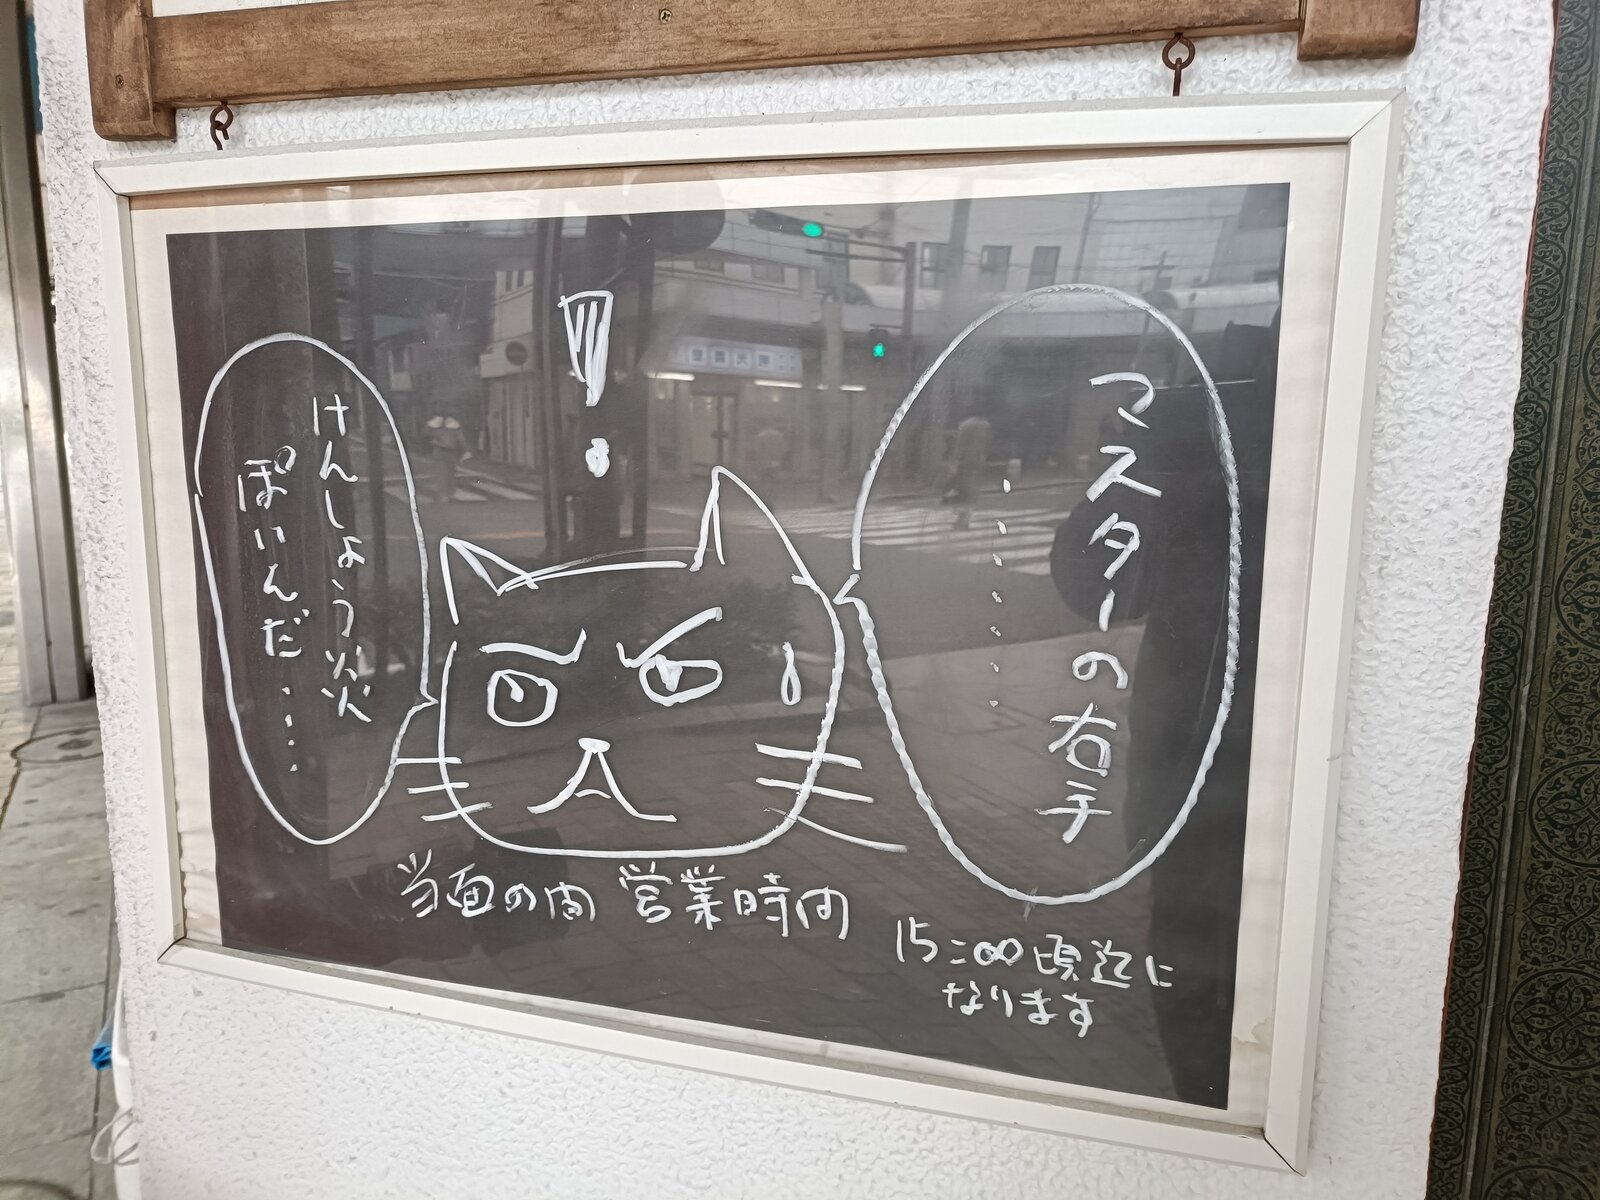 マスターの右手
‥‥‥‥
けんしょう炎
ぽいんだ‥‥
!
当面の間 営業時間
15:00頃迄に
なります